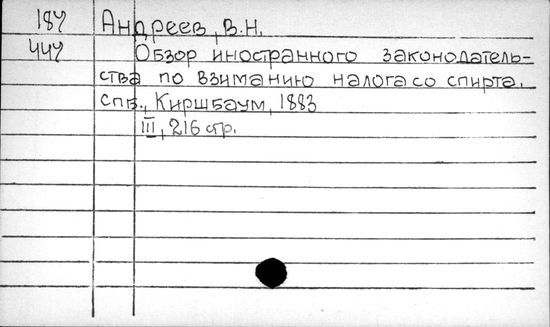 187 Андреев, В.Н.
447 Обзор иностранного законодатель-
ства по взиманию налога со спирта.
Спб., Киршбаум, 1883
III, 216 стр.